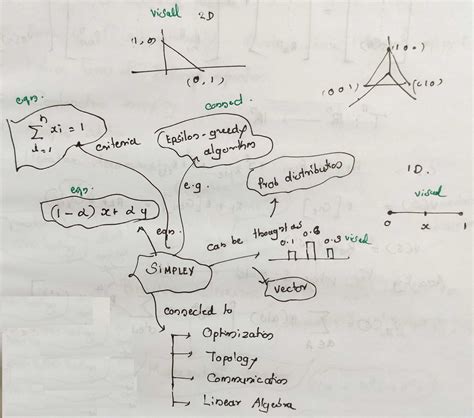 visual 2D
(1,0)
(0,1)
(100)
(001)
(010)
eqn.
n
∑ xi = 1
i=1
criteria
connect
Epsilon-greedy
algorithm
e.g.
Prob distribution
1D.
visual
0 x 1
eqn.
(1-α) x + α y
eqn.
can be thought as
0.1 0.6 0.3 visual
SIMPLEX
vector
connected to
→ Optimization
→ Topology
→ Communication
→ Linear Algebra